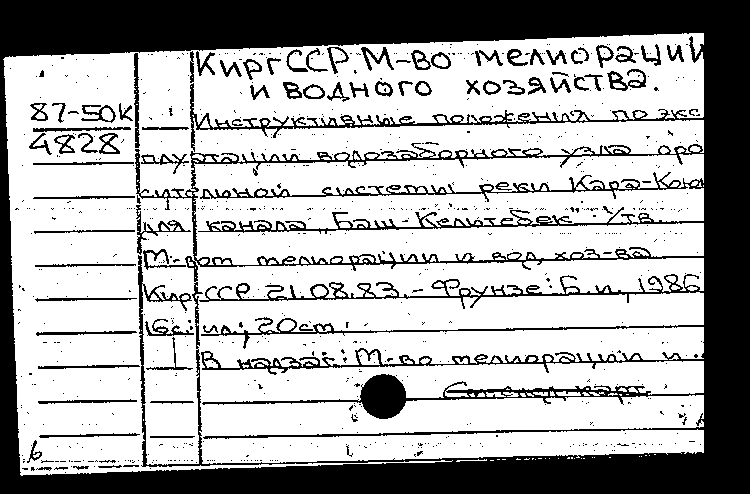 КиргССР. М-во мелиорации
и водного хозяйства.
87-50К
4828
Инструктивные положения по экс
плуатации водозаборного узла оро
сительной системы реки Кара-
для канала „Баш-Кельтебек". Утв.
М-вом мелиорации и вод, хоз-ва
КиргССР 21.08.83. - Фрунзе: Б.и., 1986
16с: ил; 20см.
В надзаг: М-во мелиорации и ..
См. след. карт.
6